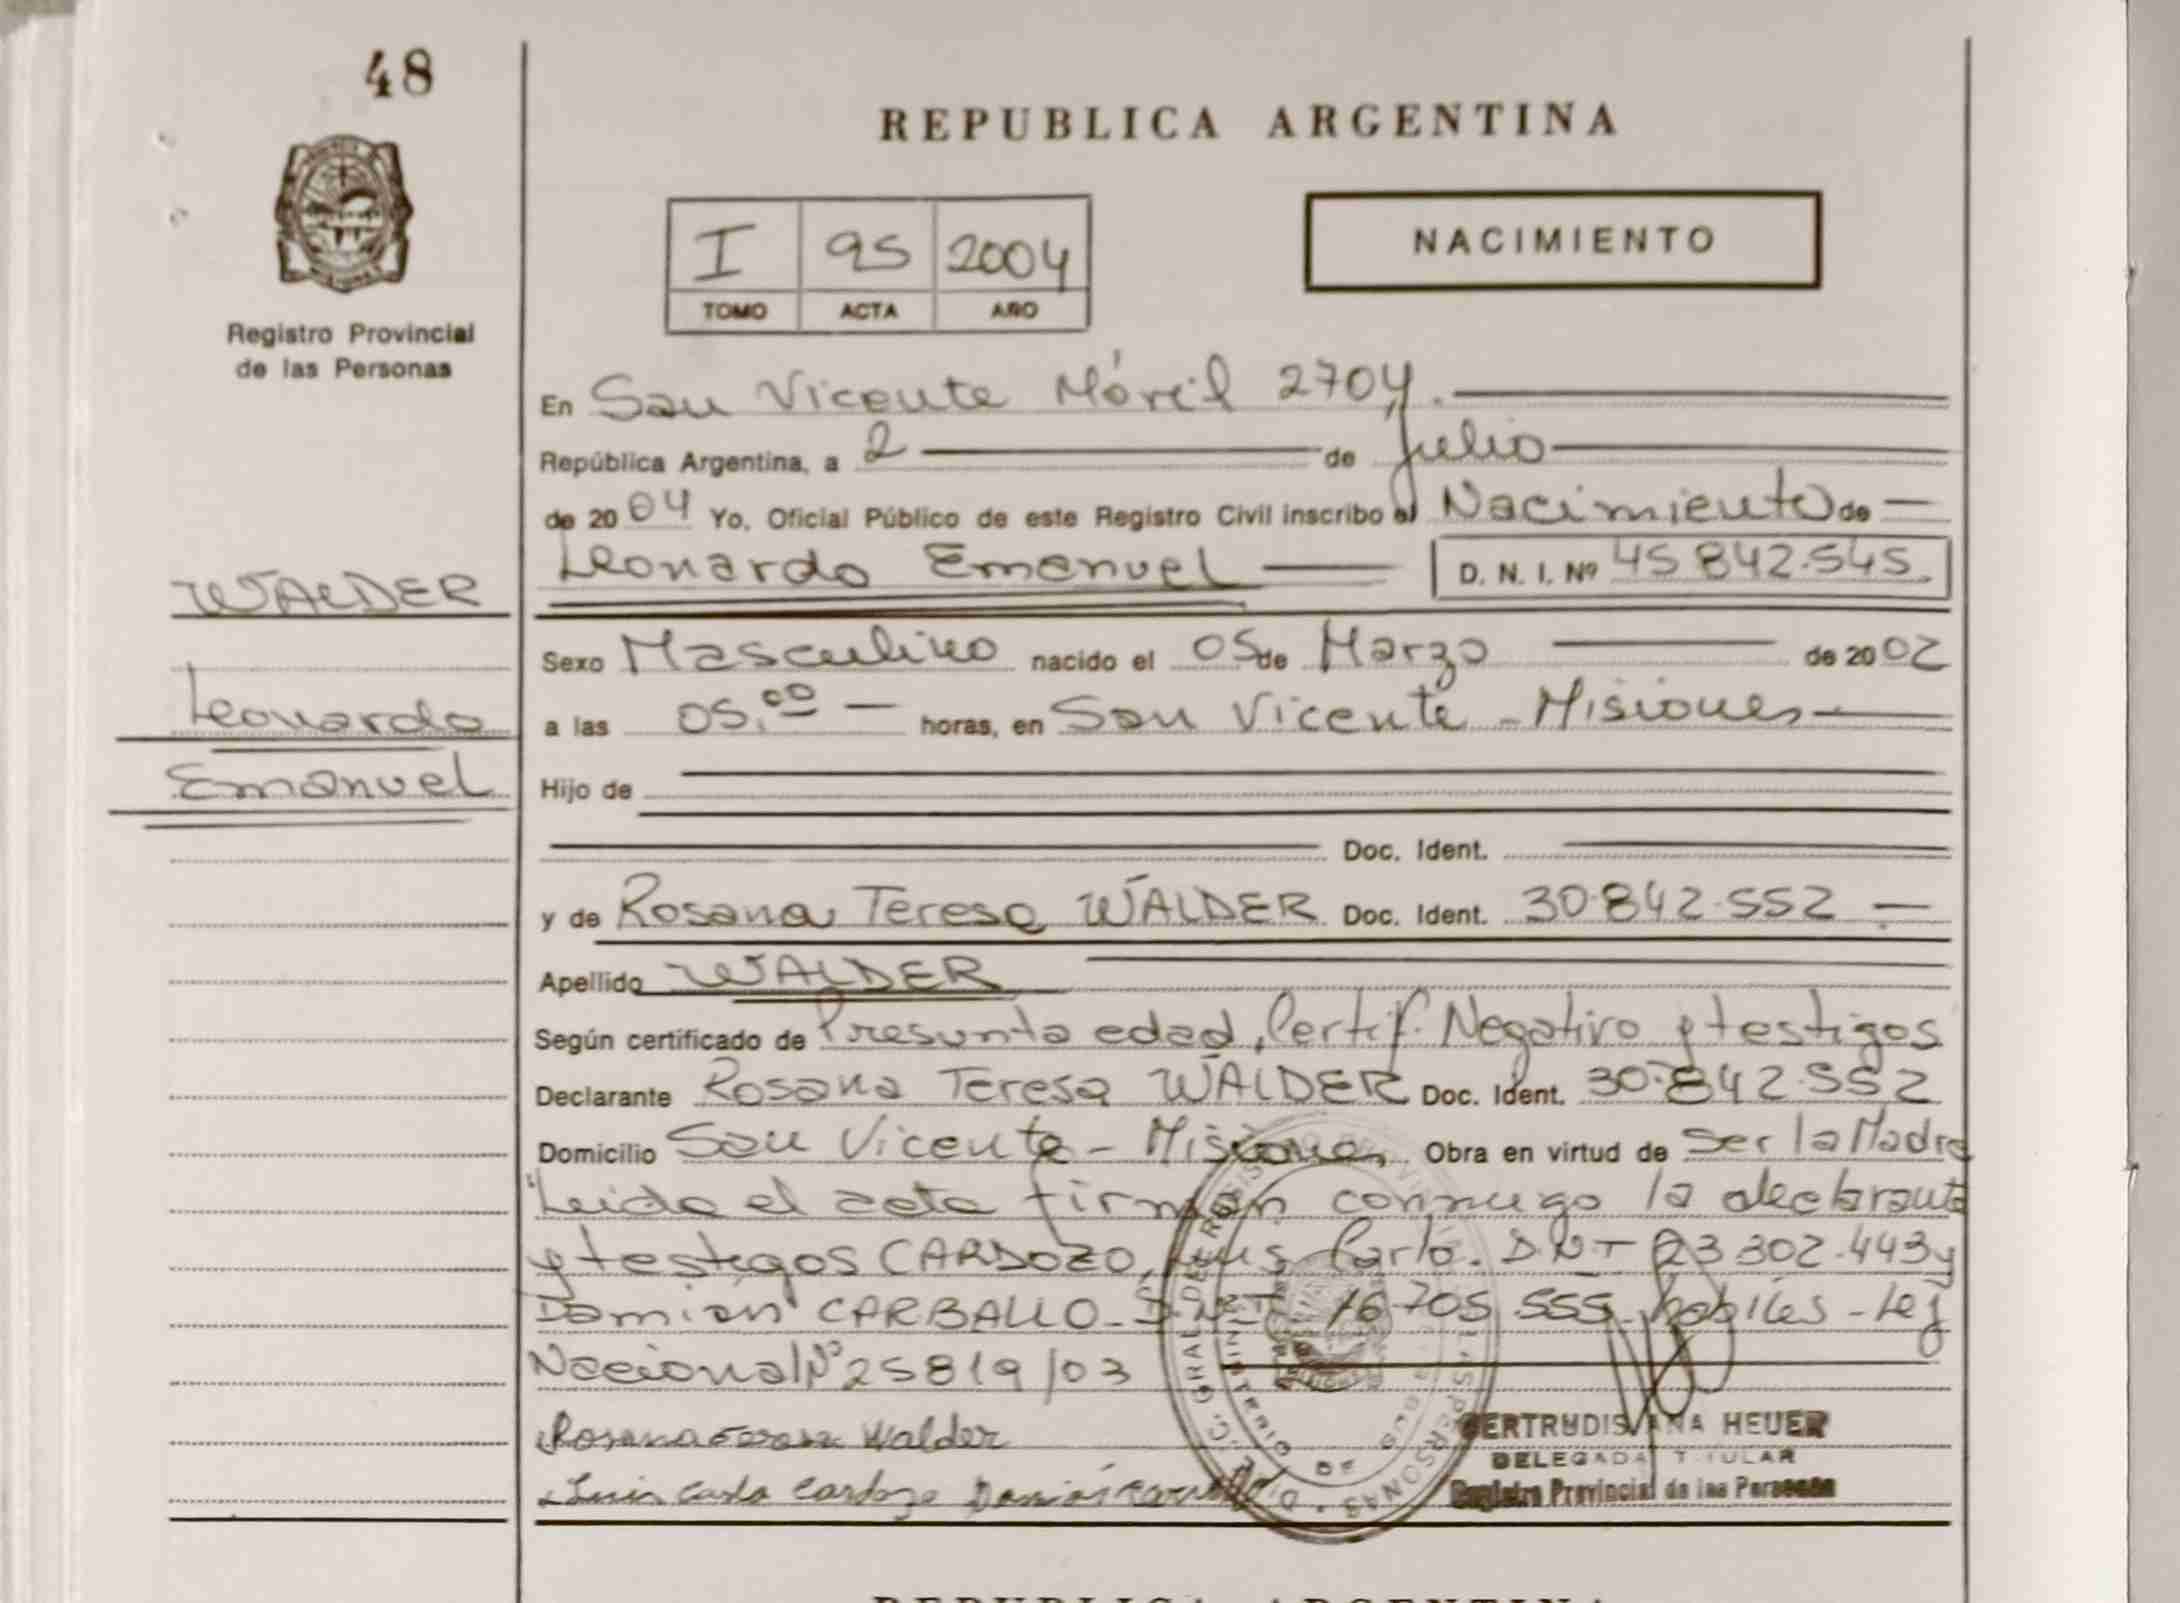 48
REPUBLICA ARGENTINA
I 95 2004
TOMO ACTA AÑO
NACIMIENTO
Registro Provincial
de las Personas
En San Vicente Móvil 2704.
República Argentina, a 2 de Julio
de 2004 Yo, Oficial Público de este Registro Civil inscribo el Nacimiento de
Leonardo Emanuel D. N. I. Nº 45 842.545.
WALDER
Leonardo
Emanuel
Sexo Masculino nacido el 05 de Marzo de 2002
a las 05.00 horas, en San Vicente - Misiones
Hijo de
Doc. Ident.
y de Rosana Teresa WALDER Doc. Ident. 30.842.552
Apellido WALDER
Según certificado de Presunta edad, Certif. Negativo y testigos
Declarante Rosana Teresa WALDER Doc. Ident. 30.842.552
Domicilio San Vicente - Misiones Obra en virtud de ser la Madre
Leida el acta firman conmigo la declarante
y testigos CARDOZO, Luis Carlo. D.N.I 23 302.443 y
Damián CARBALLO - D.N.I 16.705.555 habiles - Ley
Nacional Nº 25819/03
Rosana Teresa Walder
Luis Carlo Cardozo Damián
GERTRUDIS ANA HEUER
DELEGADA TITULAR
Registro Provincial de las Personas
REPUBLICA ARGENTINA